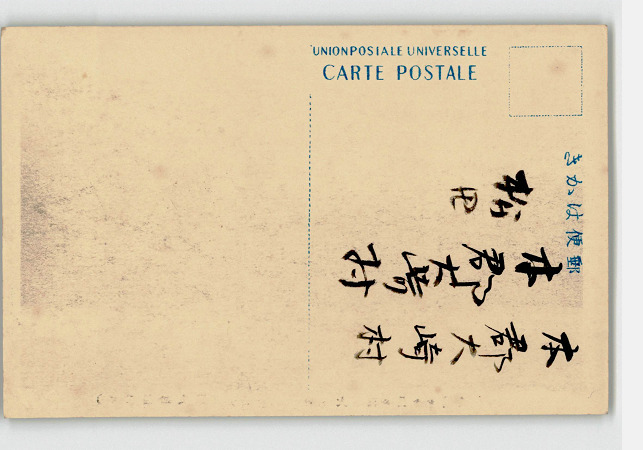 UNION POSTALE UNIVERSELLE
CARTE POSTALE
きかは便郵
本郡大崎村
本郡大崎村
松田